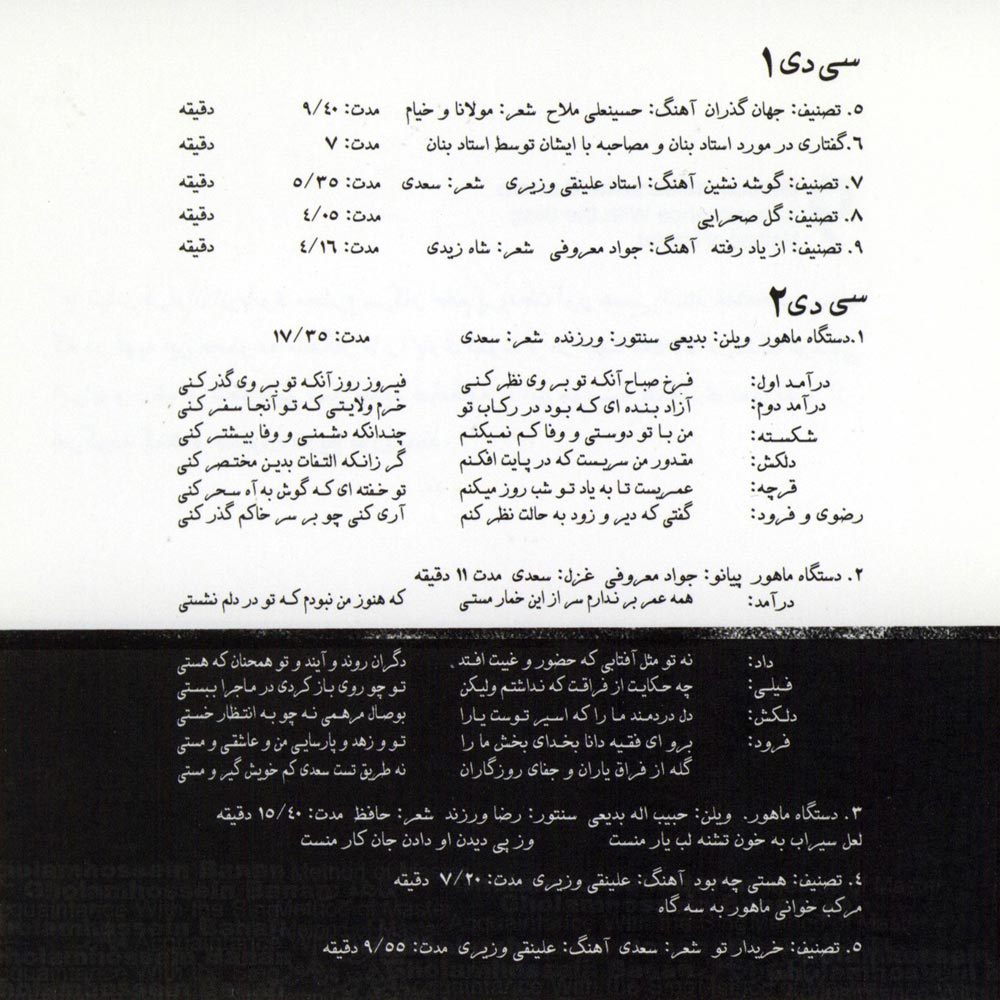 سی دی ۱
۵. تصنیف: جهان گذران آهنگ: حسینعلی ملاح شعر: مولانا و خیام مدت: ۹/۴۰ دقیقه
۶.گفتاری در مورد استاد بنان و مصاحبه با ایشان توسط استاد بنان مدت: ۷ دقیقه
۷. تصنیف: گوشه نشین آهنگ: استاد علینقی وزیری شعر: سعدی مدت: ۵/۳۵ دقیقه
۸. تصنیف: گل صحرایی مدت: ۴/۰۵ دقیقه
۹. تصنیف: از یاد رفته آهنگ: جواد معروفی شعر: شاه زیدی مدت: ۴/۱۶ دقیقه
سی دی ۲
۱.دستگاه ماهور ویلن: بدیعی سنتور: ورزنده شعر: سعدی مدت: ۱۷/۳۵
درآمد اول: فرخ صباح آنکه تو بر وی نظر کنی فیروز روز آنکه تو بر وی گذر کنی
درآمد دوم: آزاد بنده ای که بود در رکاب تو خرم ولایتی که تو آنجا سفر کنی
شکسته: من با تو دوستی و وفا کم نمیکنم چندانکه دشمنی و وفا بیشتر کنی
دلکش: مقدور من سریست که در پایت افکنم گر زانکه التفات بدین مختصر کنی
قرچه: عمریست تا به یاد تو شب روز میکنم تو خفته ای که گوش به آه سحر کنی
رضوی و فرود: گفتی که دیر و زود به حالت نظر کنم آری کنی چو بر سر خاکم گذر کنی
۲. دستگاه ماهور پیانو: جواد معروفی غزل: سعدی مدت ۱۱ دقیقه
درآمد: همه عمر بر ندارم سر از این خمار مستی که هنوز من نبودم که تو در دلم نشستی
داد: نه تو مثل آفتابی که حضور و غیبت افتد دگران روند و آیند و تو همحنان که هستی
فیلی: چه حکایت از فراقت که نداشتم ولیکن تو چو روی باز کردی در ماجرا ببستی
دلکش: دل دردمند ما را که اسیر توست یارا بوصال مرهمی نه چو به انتظار خستی
فرود: برو ای فقیه دانا بخدای بخش ما را تو و زهد و پارسایی من و عاشقی و مستی
گله از فراق یاران و جفای روزگاران نه طریق تست سعدی کم خویش گیر و مستی
۳. دستگاه ماهور. ویلن: حبیب اله بدیعی سنتور: رضا ورزند شعر: حافظ مدت: ۱۵/۴۰ دقیقه
لعل سیراب به خون تشنه لب یار منست وز پی دیدن او دادن جان کار منست
۴. تصنیف: هستی چه بود آهنگ: علینقی وزیری مدت: ۷/۲۰ دقیقه
مرکب خوانی ماهور به سه گاه
۵. تصنیف: خریدار تو شعر: سعدی آهنگ: علینقی وزیری مدت: ۹/۵۵ دقیقه